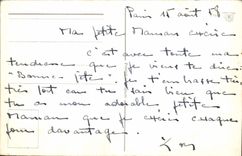 Paris 15 août 58
Ma petite Maman chérie
c'est avec toute ma
tendresse que je viens te dire
"Bonne fête" je t'embrasse très
très fort car tu sais bien que
tu as mon adorable petite
Maman que je chéris chaque
jour davantage.